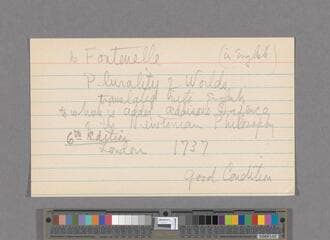 Fontenelle (in English)
Plurality of Worlds
translated into English
to which is added Addison's Defence
of the Newtonian Philosophy
6th Edition
London 1737
Good Condition